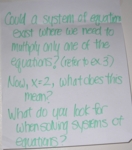 Could a system of equations
exist where we need to
multiply only one of the
equations? (refer to ex 3)
Now, x=2, what does this
mean?
What do you look for
when solving systems of
equations?